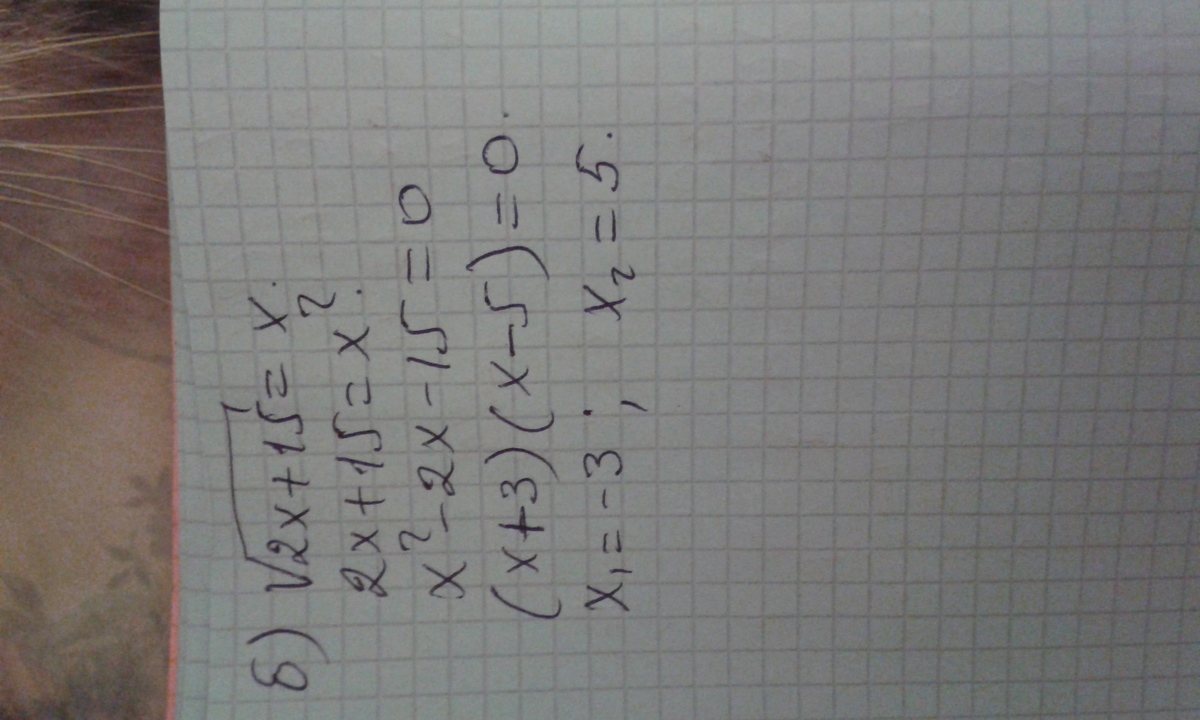 б) √2x+15 = x.
2x+15=x².
x²-2x-15=0
(x+3)(x-5)=0.
x₁=-3; x₂=5.